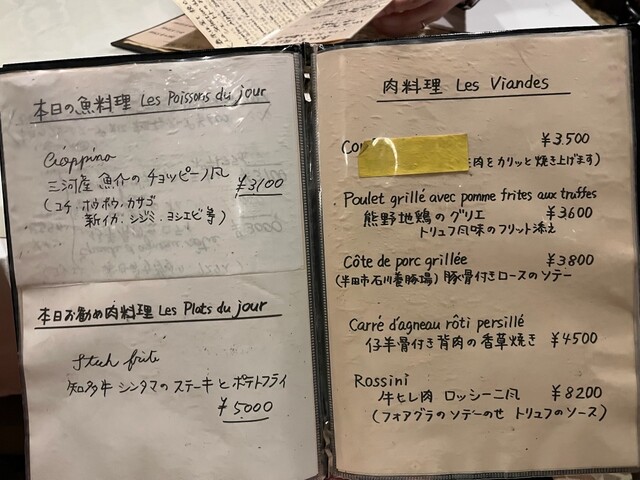 本日の魚料理 Les Poissons du jour
Cioppino
三河産 魚介の チョッピーノ風
¥3100
(コチ・ホウボウ・カサゴ
新イカ・シジミ・ヨシエビ等)
本日お勧め肉料理 Les Plats du jour
Steck frite
知多牛 シンタマの ステーキと ポテトフライ
¥5000
肉料理 Les Viandes
¥3.500
肉をカリッと焼き上げます)
Poulet grillé avec pomme frites aux truffes
熊野地鶏の グリエ ¥3600
トリュフ風味の フリット添え
Côte de porc grillée ¥3800
(半田市石川養豚場) 豚骨付きロースの ソテー
Carré d'agneau rôti persillé
仔羊骨付き背肉の香草焼き ¥4500
Rossini
牛ヒレ肉 ロッシーニ風 ¥8200
(フォアグラの ソテーのせ トリュフの ソース)